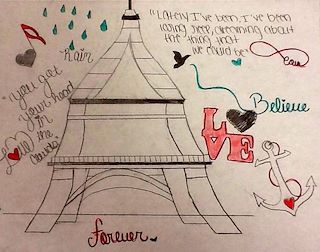 "Lately I've been, I've been
losing sleep, dreaming about
the thing that
we could be"
Rain
you got
your head
in
the
clouds
Believe
LO
VE
Forever